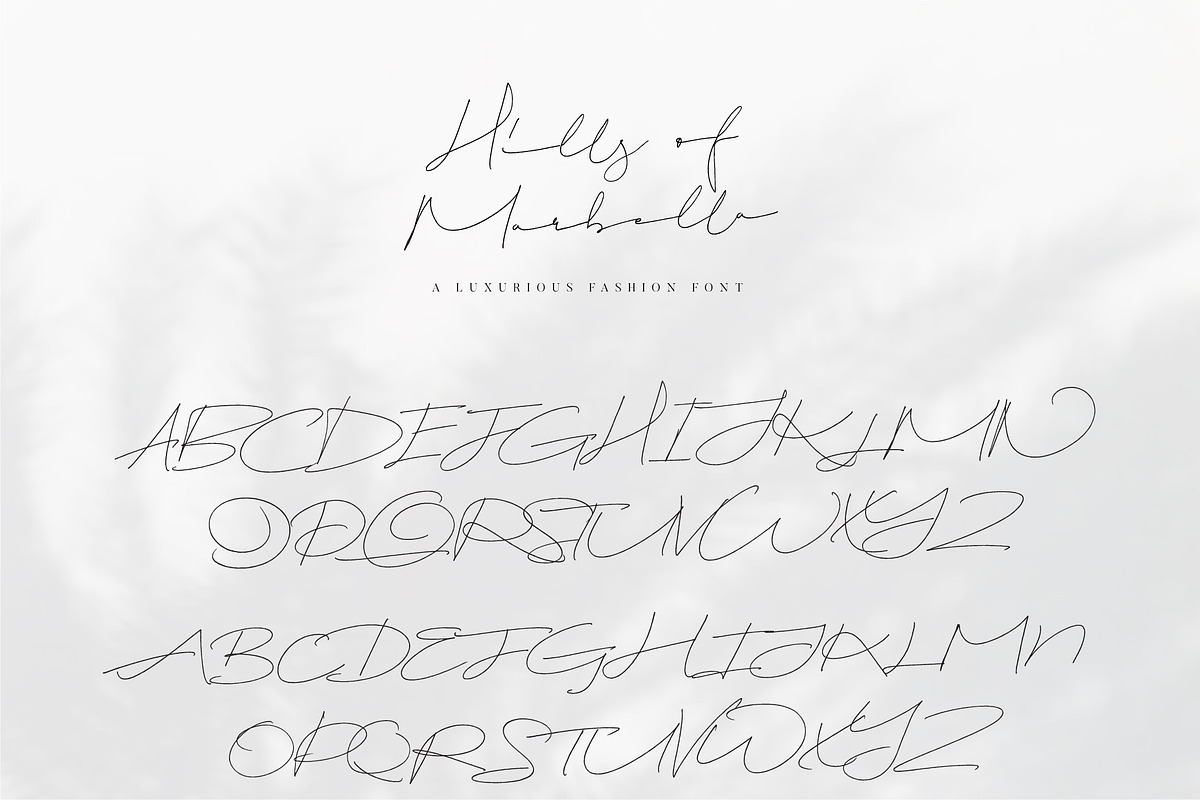 Hills of
Marbella
A LUXURIOUS FASHION FONT
ABCDEFGHIJKLMN
OPQRSTUVWXYZ
ABCDEFGHIJKLMn
OPQRSTUVWXYZ